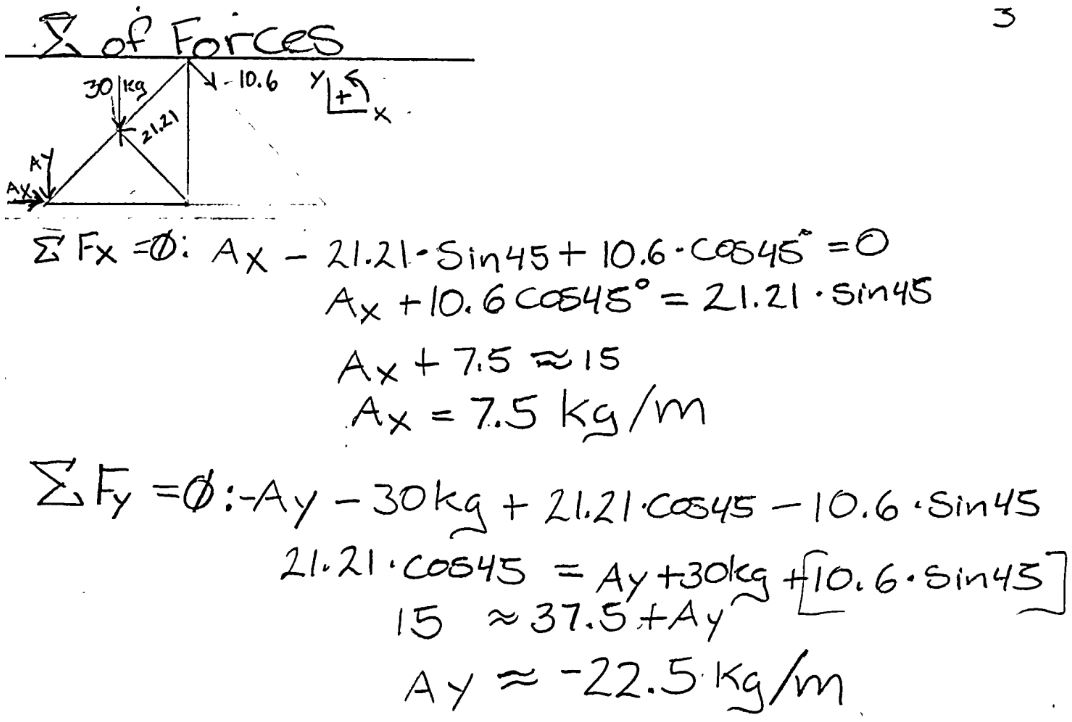 3
Σ of Forces
30 kg
-10.6
Y
+
X
21.21
AY
AX
Σ Fx =Ø: Ax - 21.21·Sin45 + 10.6·cos45° = 0
Ax + 10.6 cos45° = 21.21 · sin45
Ax + 7.5 ≈ 15
Ax = 7.5 kg/m
Σ Fy =Ø: -Ay - 30kg + 21.21·cos45 - 10.6·Sin45
21.21·cos45 = Ay +30kg +[10.6·Sin45]
15 ≈ 37.5 + Ay
Ay ≈ -22.5 kg/m